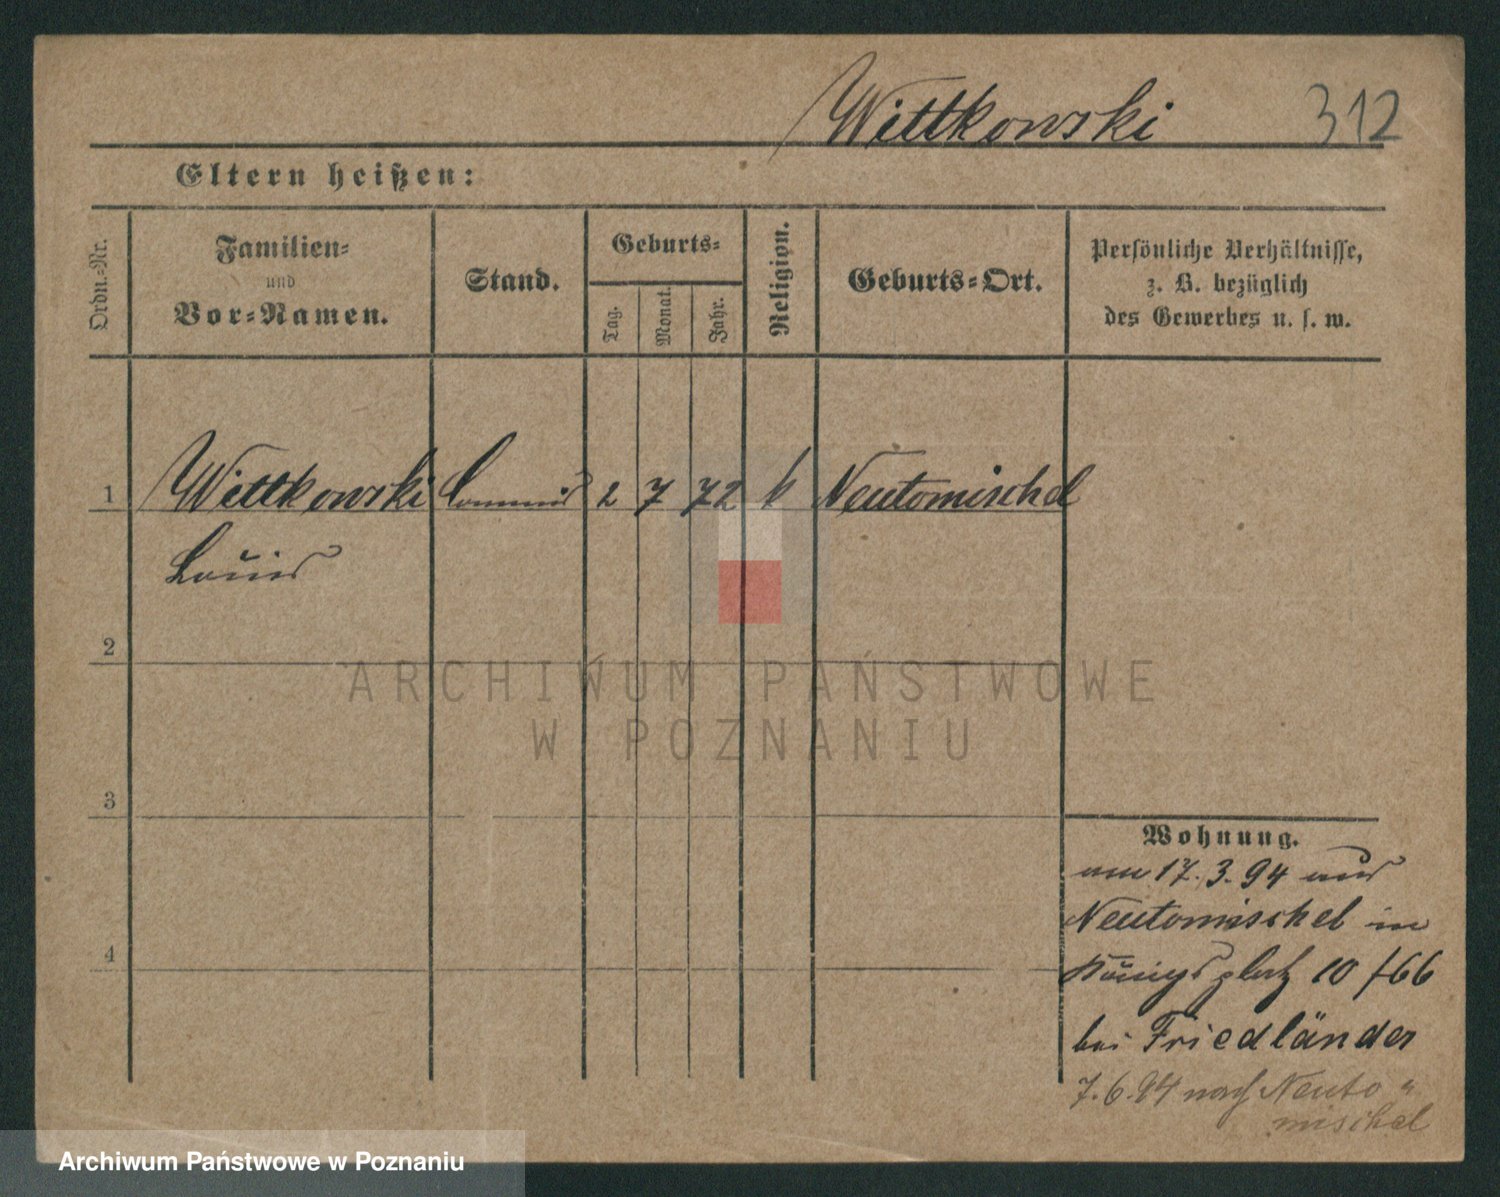 Wittkowski 312
Eltern heißen:
Ordn.-Nr.
Familien-
und
Vor-Namen.
Stand.
Geburts-
Tag.
Monat.
Jahr.
Religion.
Geburts-Ort.
Persönliche Verhältnisse,
z. B. bezüglich
des Gewerbes u. s. w.
1 Wittkowski Commis 2 7 72 Neutomischel
Louis
2
ARCHIWUM PAŃSTWOWE
W POZNANIU
3
Wohnung.
am 17.3.94 aus
Neutomischel in
4
Königsplatz 10 f66
bei Friedländer
7.6.94 nach Neuto"
mischel
Archiwum Państwowe w Poznaniu